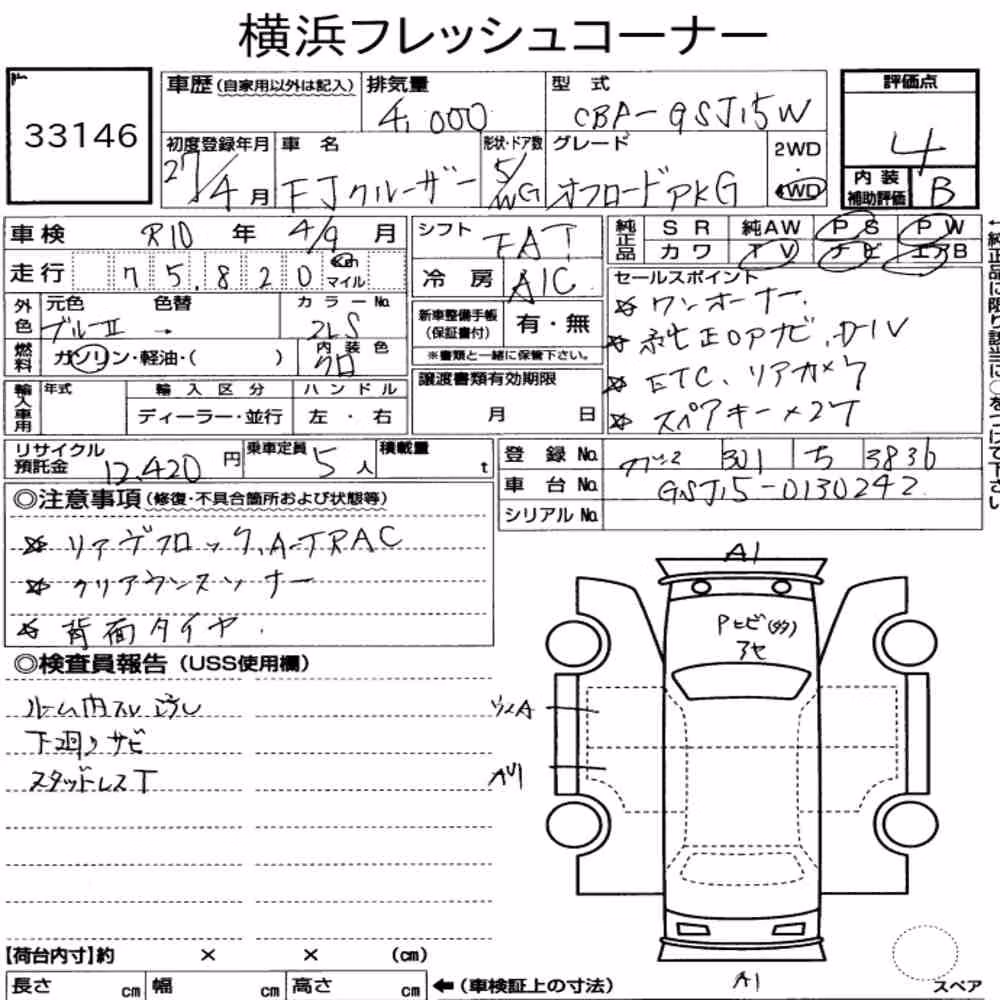 横浜フレッシュコーナー
33146
車歴 (自家用以外は記入) 排気量 4,000 型式 CBA-GSJ15W
評価点 4
初度登録年月 27/4月 車名 FJクルーザー 形状・ドア数 5/WG グレード オフロードPKG 2WD 4WD
内装補助評価 B
車検 R10 年 4/9 月 シフト FAT
純正品 SR 純AW PS PW
カワ TV ナビ エアB
走行 75,820 Km マイル 冷房 A/C
外色 元色 ブルーII 色替 → カラーNo. 2LS
燃料 ガソリン・軽油・( ) 内装色 クロ
新車整備手帳 (保証書付) 有・無
※書類と一緒に保管下さい。
セールスポイント
☆ ワンオーナー
☆ 純正OPナビ、
☆ ETC、リアカメラ
☆ スペアキー×2ケ
←純正品に限り該当に○をつけて下さい
輸入車用 年式 輸入区分 ディーラー・並行 ハンドル 左・右
譲渡書類有効期限 月 日
リサイクル預託金 12,420円 乗車定員 5人 積載量 t
登録No. 301 ち 3836
車台No. GSJ15-0130242
シリアルNo.
◎注意事項 (修復・不具合箇所および状態等)
☆ リアデフロック、A-TRAC
☆ クリアランスソナー
☆ 背面タイヤ.
◎検査員報告 (USS使用欄)
ルーム内スレ汚レ
下廻りサビ
スタッドレスT
A1
Pヒビ(タタ)
アセ
A1
スペア
【荷台内寸】約 × × (cm)
長さ cm 幅 cm 高さ cm ←(車検証上の寸法)